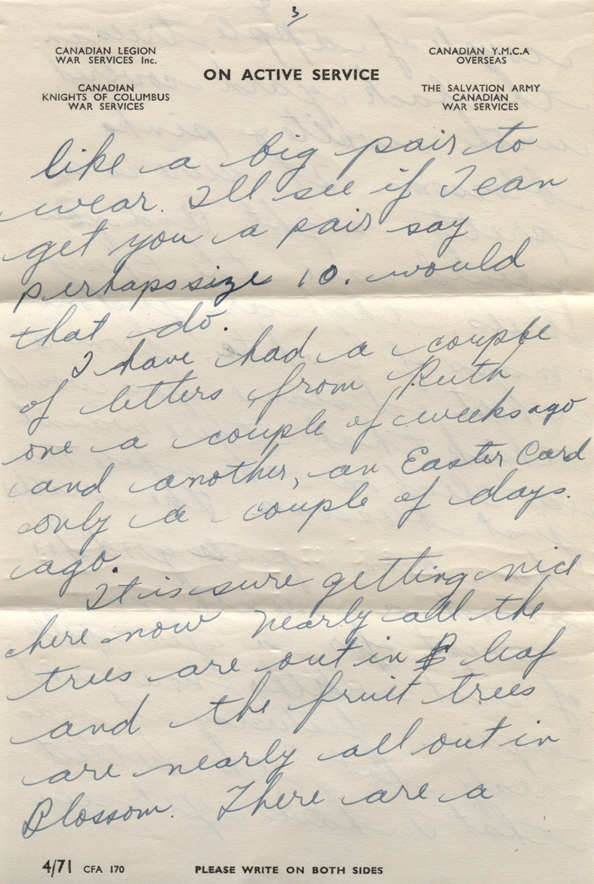 3
CANADIAN LEGION
WAR SERVICES Inc.
CANADIAN
KNIGHTS OF COLUMBUS
WAR SERVICES
ON ACTIVE SERVICE
CANADIAN Y.M.C.A
OVERSEAS
THE SALVATION ARMY
CANADIAN
WAR SERVICES
like a big pair to
wear. I'll see if I can
get you a pair say
perhaps size 10. would
that do.
I have had a couple
of letters from Ruth
one a couple of weeks ago
and another, an Easter Card
only a couple of days.
ago.
It is sure getting nice
here now nearly all the
trees are out in leaf
and the fruit trees
are nearly all out in
Blossom. There are a
4/71 CFA 170 PLEASE WRITE ON BOTH SIDES